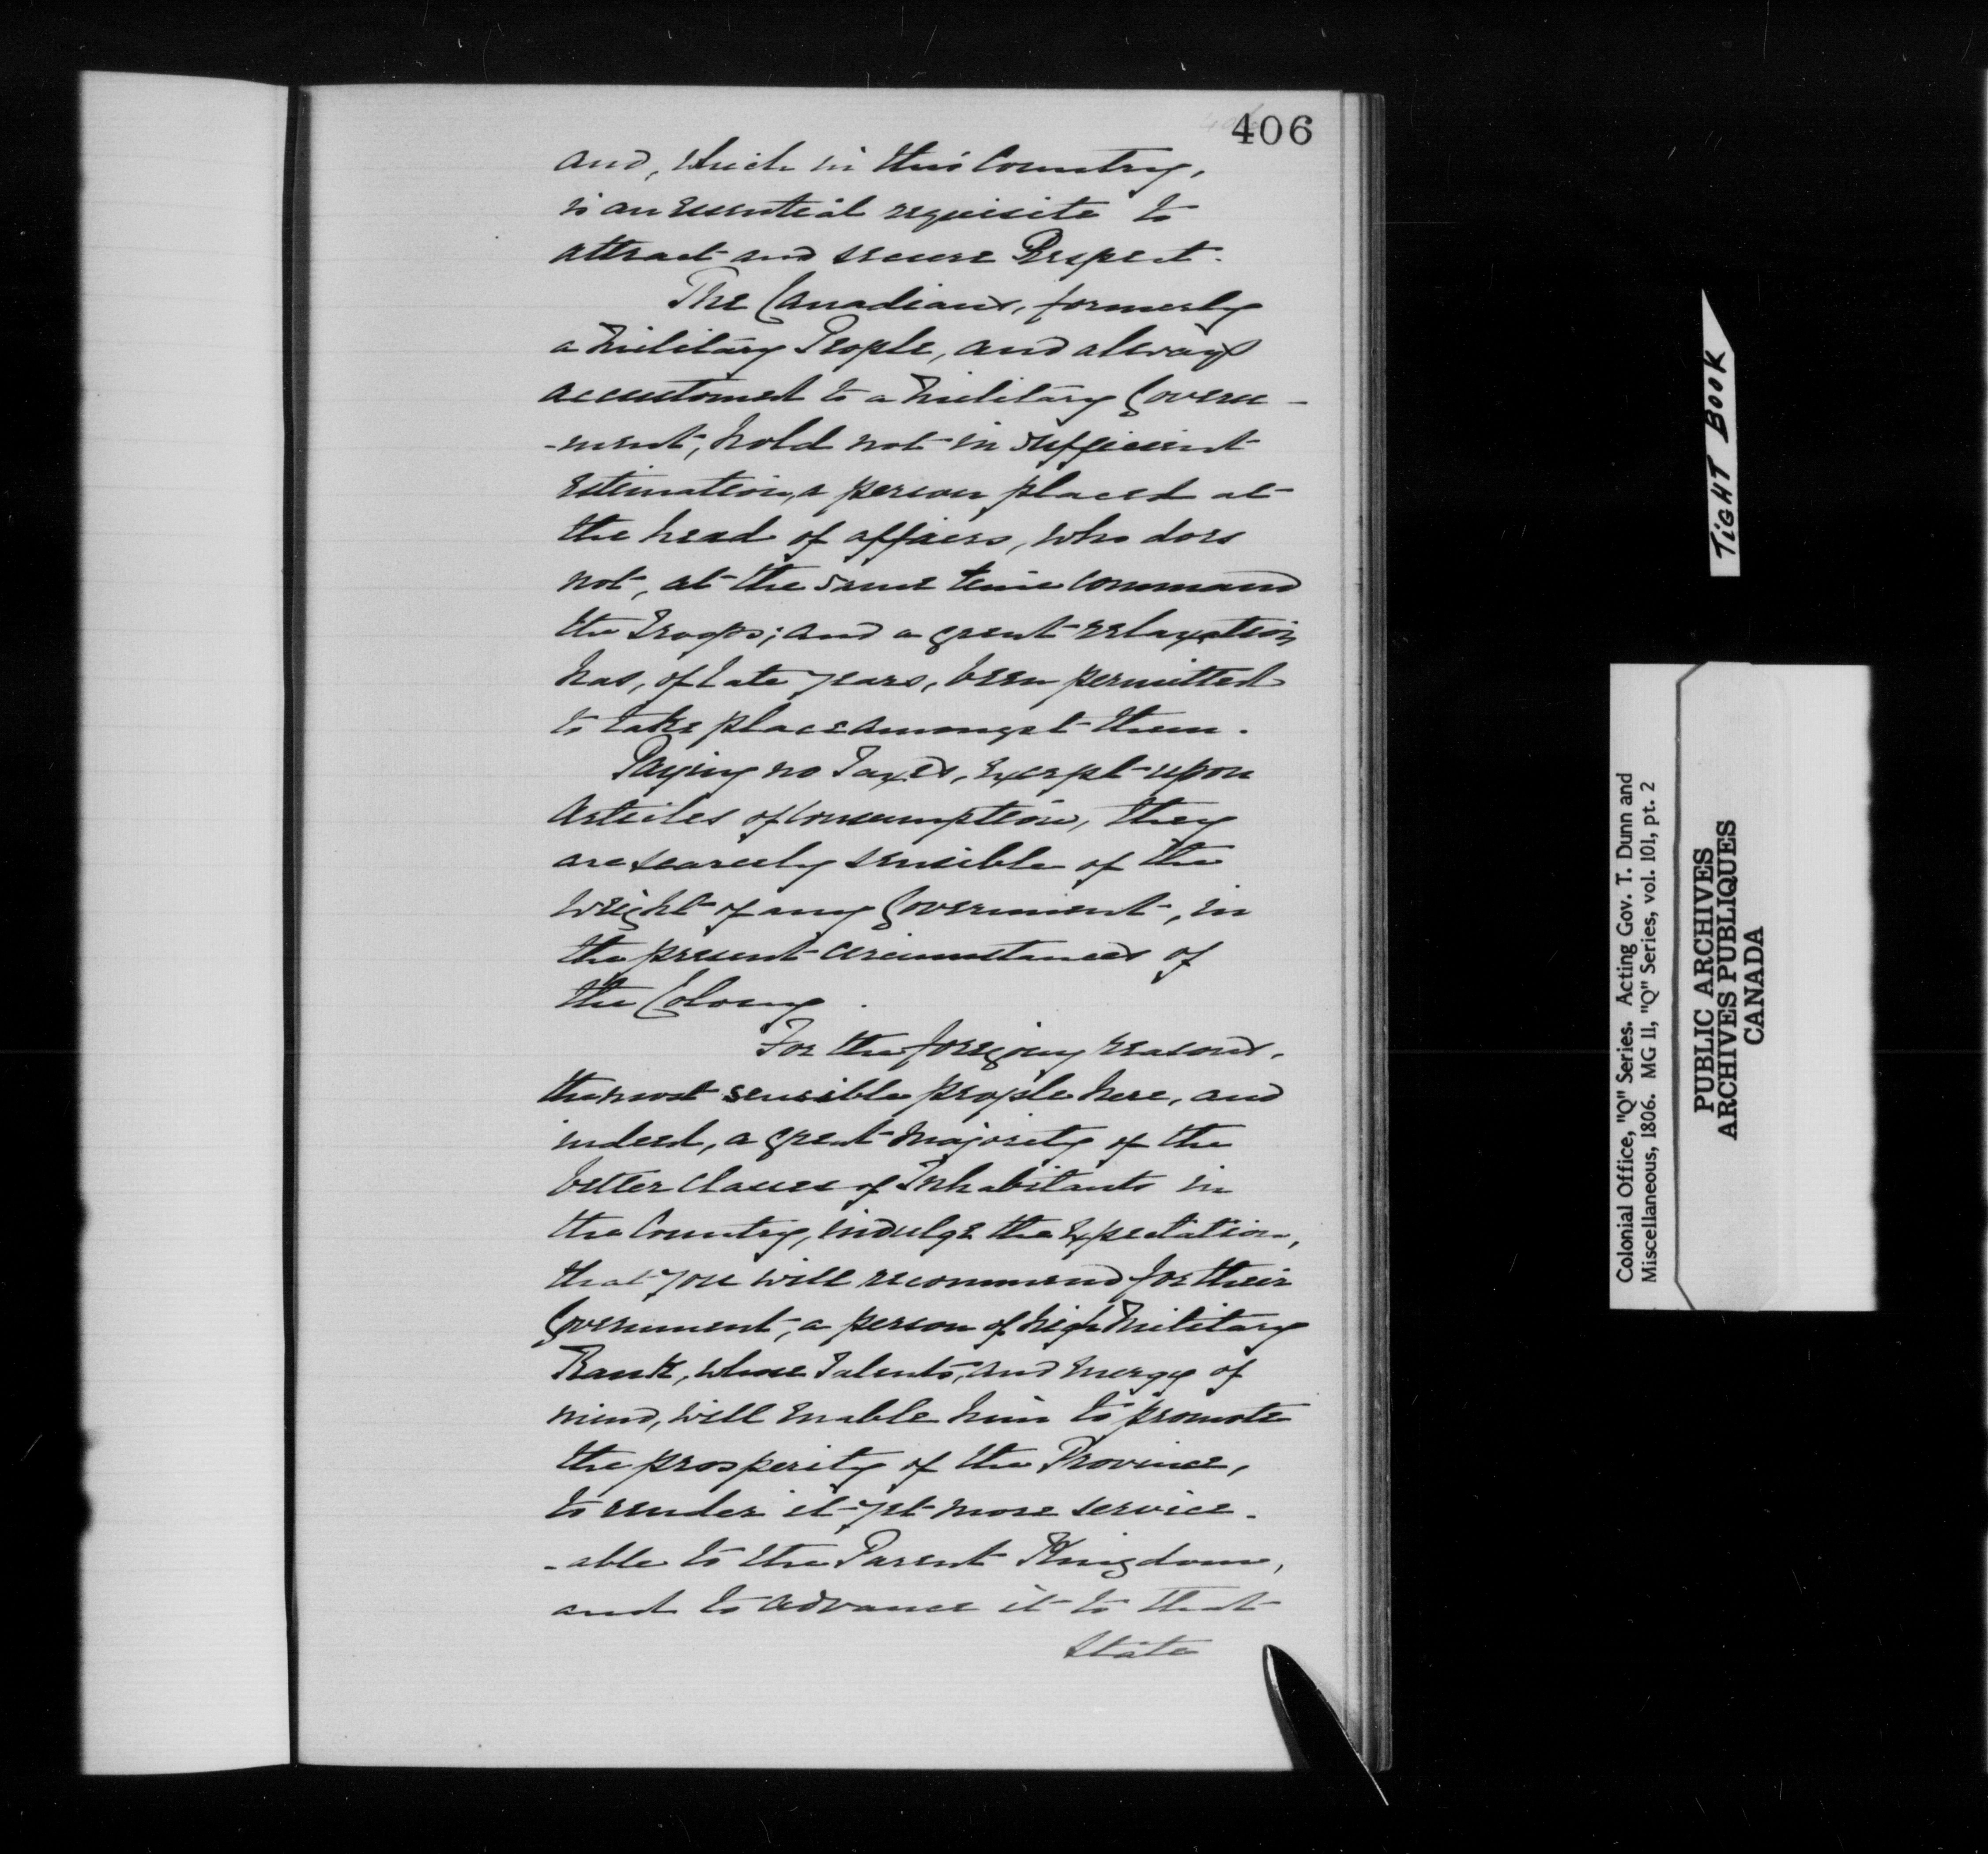 406
and, which in this Country,
is an Essential requisite to
attract and secure Respect.
The Canadians, formerly
a Military People, and always
accustomed to a Military Govern-
-ment, hold not in sufficient
Estimation, a person placed at
the head of affairs, who does
not, at the same time command
the Troops; and a great relaxation
has, of late years, been permitted
to take place amongst them.
Paying no Taxes, Except upon
Articles of Consumption, they
are scarcely sensible of the
weight of any Government, in
the present circumstances of
the Colony.
For the foregoing reasons,
the most sensible people here, and
indeed, a great Majority of the
better classes of Inhabitants in
the Country, indulge the Expectation,
that you will recommend for their
Government, a person of high Military
Rank, whose Talents, and Energy of
mind, will Enable him to promote
the prosperity of the Province,
to render it yet more service-
-able to the Parent Kingdom,
and to advance it to that
State
TIGHT BOOK
Colonial Office, "Q" Series. Acting Gov. T. Dunn and
Miscellaneous, 1806. MG 11, "Q" Series, vol. 101, pt. 2
PUBLIC ARCHIVES
ARCHIVES PUBLIQUES
CANADA